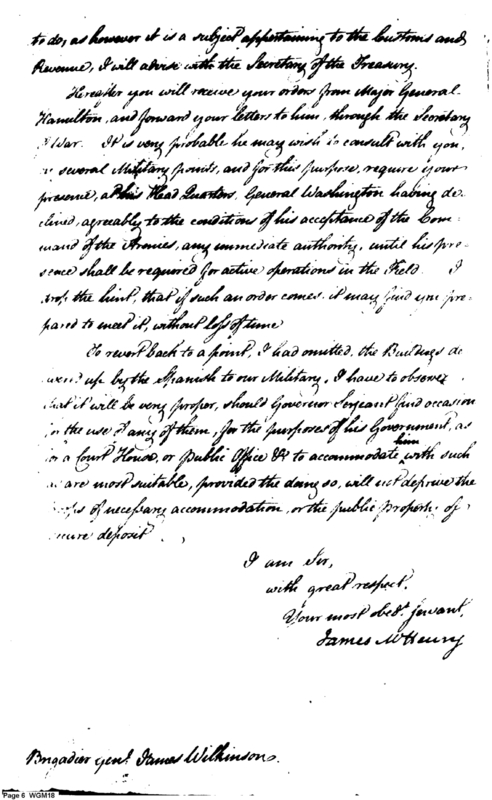 to do, as however it is a subject appertaining to the Customs and
Revenue, I will advise with the Secretary of the Treasury.
Hereafter you will receive your orders from Major General
Hamilton, and forward your letters to him, through the Secretary
War. It is very probable he may wish to consult with you,
several Military points, and for this purpose, require your
presence, at his Head Quarters, General Washington having de-
clined, agreeably to the conditions of his acceptance of the Com-
mand of the Armies, any immediate authority, until his pre-
sence shall be required for active operations in the Field. I
drop the hint, that if such an order comes it may find you pre-
pared to meet it, without loss of time
To revert back to a point, I had omitted, the Buildings de
up by the Spanish to our Military, I have to observe
that it will be very proper, should Governor Serjeant find occasion
for the use of any of them, for the purposes of his Government, as
for a Court House, or Public Office &c to accommodate him with such
as are most suitable, provided the doing so, will not deprive the
of necessary accommodation, or the public property of
secure deposit
I am Sir,
with great respect,
Your most obedt. servant,
James McHenry
Brigadier Genl. James Wilkinson.
Page 6 WGM18